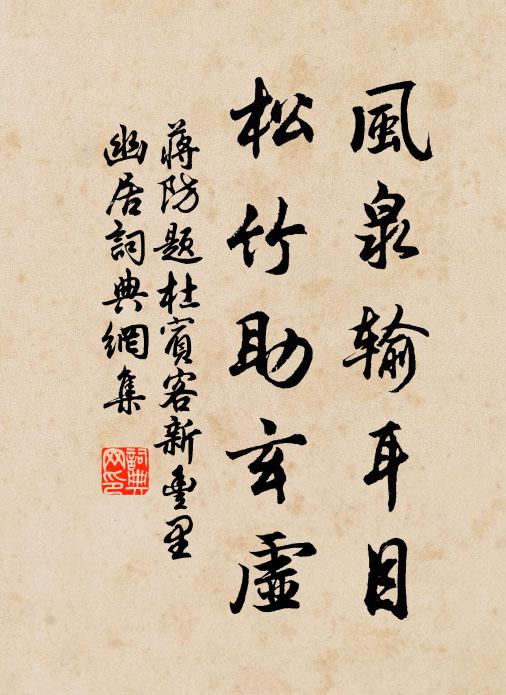 風泉输耳目
松竹助玄虛
蔣防題杜賓客新豊里
幽居詞典網集
詞典
网印